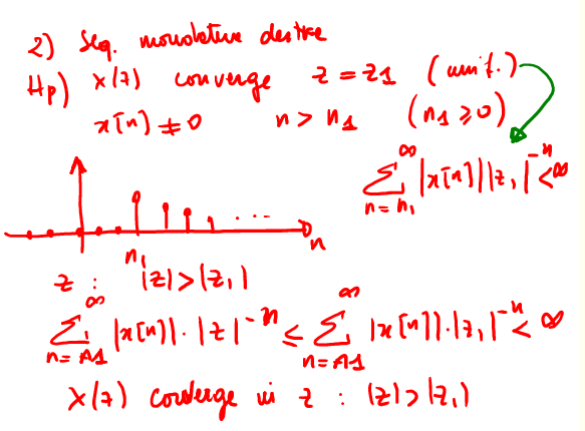 2) Seq. monolatere destre
Hp) X(z) converge z = z1 (unif.)
x[n] ≠ 0 n > n1 (n1 ≥ 0)
∞ ∑ n=n1 |x[n]||z1|^-n < ∞
n1 n
z : |z| > |z1|
∞ ∑ n=n1 |x[n]|·|z|^-n ≤ ∞ ∑ n=n1 |x[n]|·|z1|^-n < ∞
X(z) converge in z : |z| > |z1|